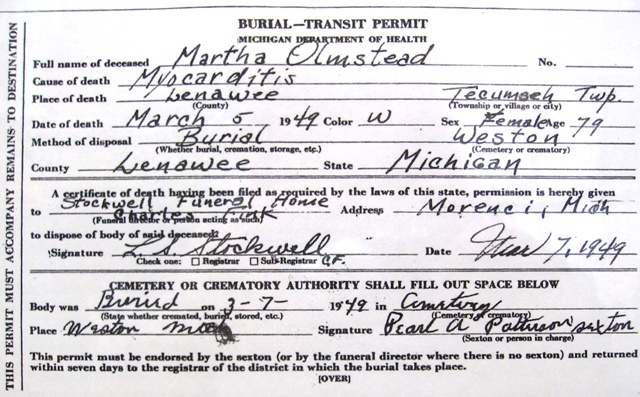 THIS PERMIT MUST ACCOMPANY REMAINS TO DESTINATION
BURIAL—TRANSIT PERMIT
MICHIGAN DEPARTMENT OF HEALTH
Full name of deceased Martha Olmstead No.
Cause of death Myocarditis
Place of death Lenawee Tecumseh Twp.
(County) (Township or village or city)
Date of death March 5 1949 Color W Sex Female Age 79
Method of disposal Burial Weston
(Whether burial, cremation, storage, etc.) (Cemetery or crematory)
County Lenawee State Michigan
A certificate of death having been filed as required by the laws of this state, permission is hereby given
Stockwell Funeral Home
to Charles Address Morenci, Mich
(Funeral director or person acting as such)
to dispose of body of said deceased
Signature L. S. Stockwell Date Mar 7, 1949
Check one: ☐ Registrar ☐ Sub-Registrar
CEMETERY OR CREMATORY AUTHORITY SHALL FILL OUT SPACE BELOW
Body was Buried on 3-7- 1949 in Cemetery
(State whether cremated, buried, stored, etc.) (Cemetery or crematory)
Place Weston Mich Signature Pearl A Patterson sexton
(Sexton or person in charge)
This permit must be endorsed by the sexton (or by the funeral director where there is no sexton) and returned
within seven days to the registrar of the district in which the burial takes place.
[OVER]